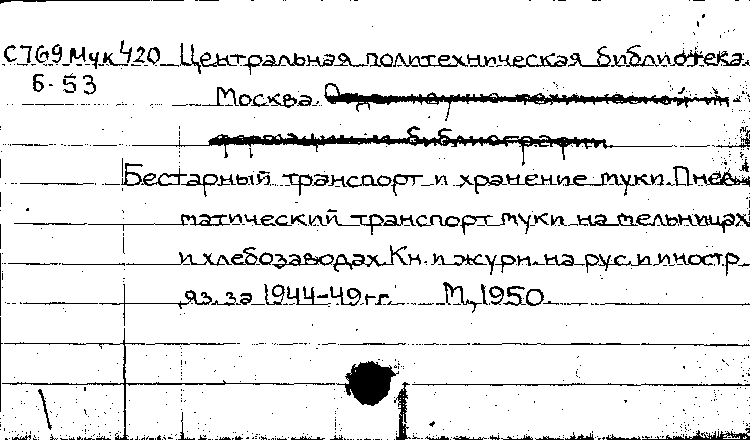 С769 Мук 420 Центральная политехническая библиотека.
Б-53
Москва. Отдел научно-технической ин-
формации и библиографии.
Бестарный транспорт и хранение муки. Пнев-
матический транспорт муки на мельницах
и хлебозаводах. Кн. и журн. на рус. и иностр.
яз. за 1944-49 гг. М., 1950.